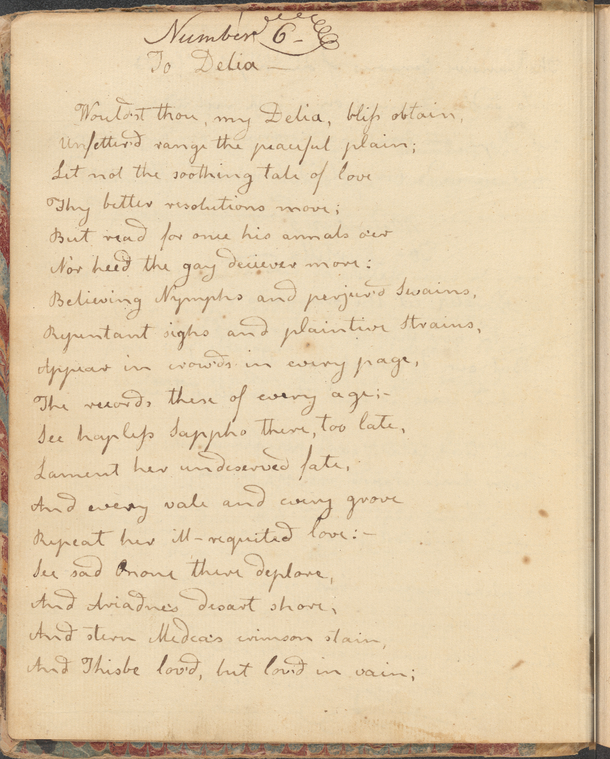 Number 6-
To Delia —
Would'st thou, my Delia, bliſs obtain,
Unfetter'd range the peaceful plain;
Let not the soothing tale of love
Thy better resolutions move;
But read for once his annals o'er
Nor heed the gay deceiver more:
Believing Nymphs and perjur'd Swains,
Repentant sighs and plaintive Strains,
Appear in crowds in every page,
The records these of every age;-
See hapleſs Sappho there, too late,
Lament her undeserved fate,
And every vale and every grove
Repeat her ill-requited love:-
See sad Œnone there deplore,
And Ariadne's desart shore,
And stern Medea's crimson stain,
And Thisbe lov'd, but lov'd in vain;